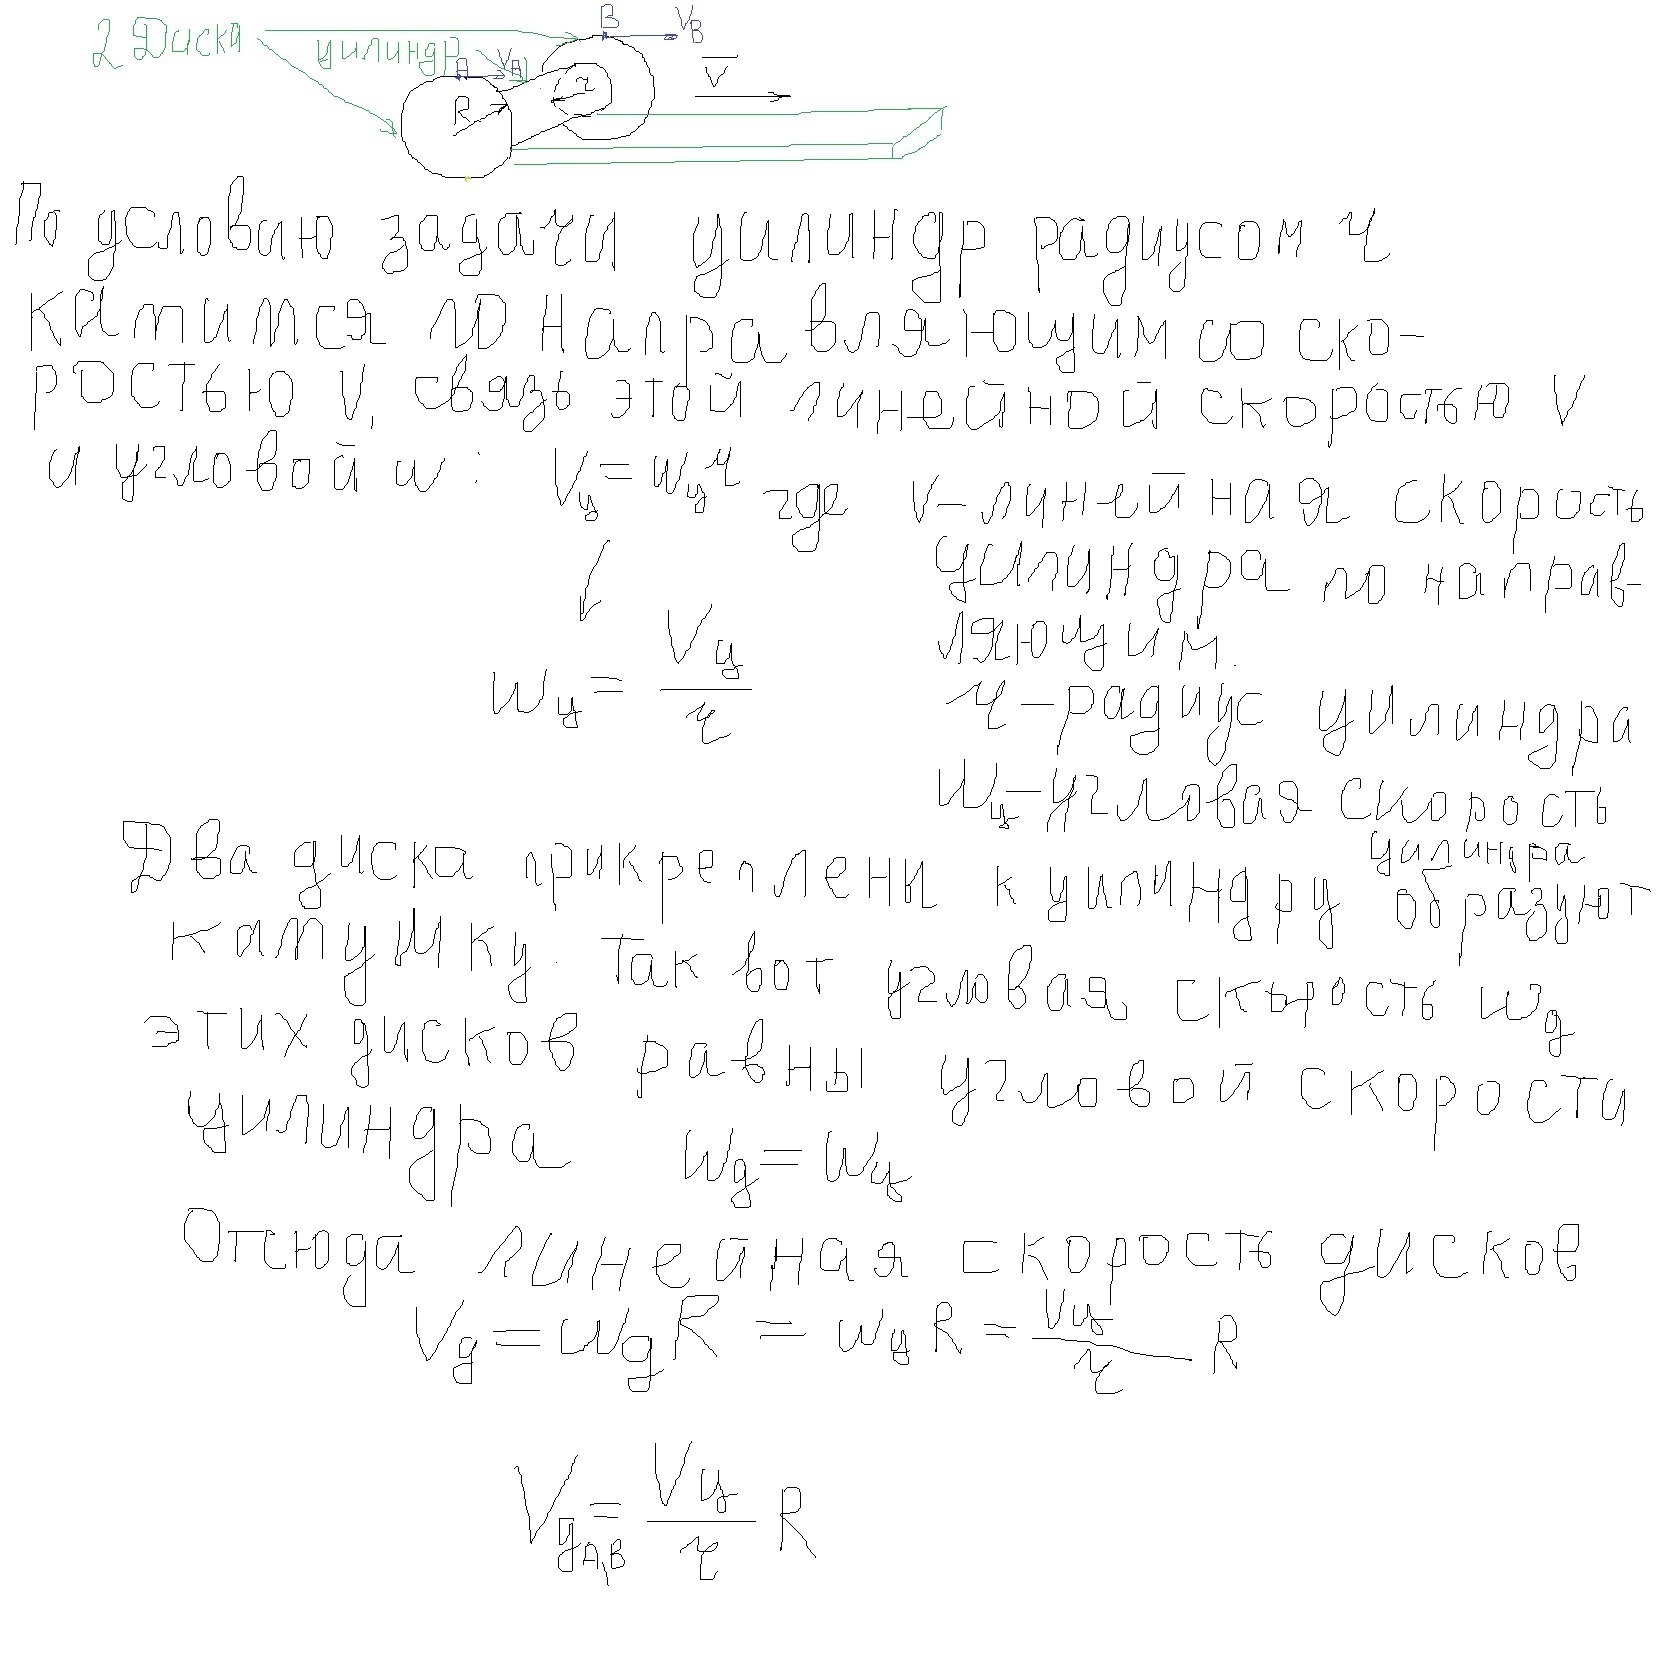 2 Диска
цилиндр
A V_A
B V_B
V
R
r
По условию задачи цилиндр радиусом r
катится по направляющим со ско-
ростью V, связь этой линейной скоростью V
и угловой w : V_ц = w_ц r где V-линейная скорость
цилиндра по направ-
ляющим.
w_ц = V_ц / r
r - радиус цилиндра
w_ц - угловая скорость
цилиндра
Два диска прикреплены к цилиндру образуют
катушку. Так вот угловая скорость w_д
этих дисков равны угловой скорости
цилиндра w_д = w_ц
Отсюда линейная скорость дисков
V_д = w_д R = w_ц R = V_ц / r R
V_д A,B = V_ц / r R